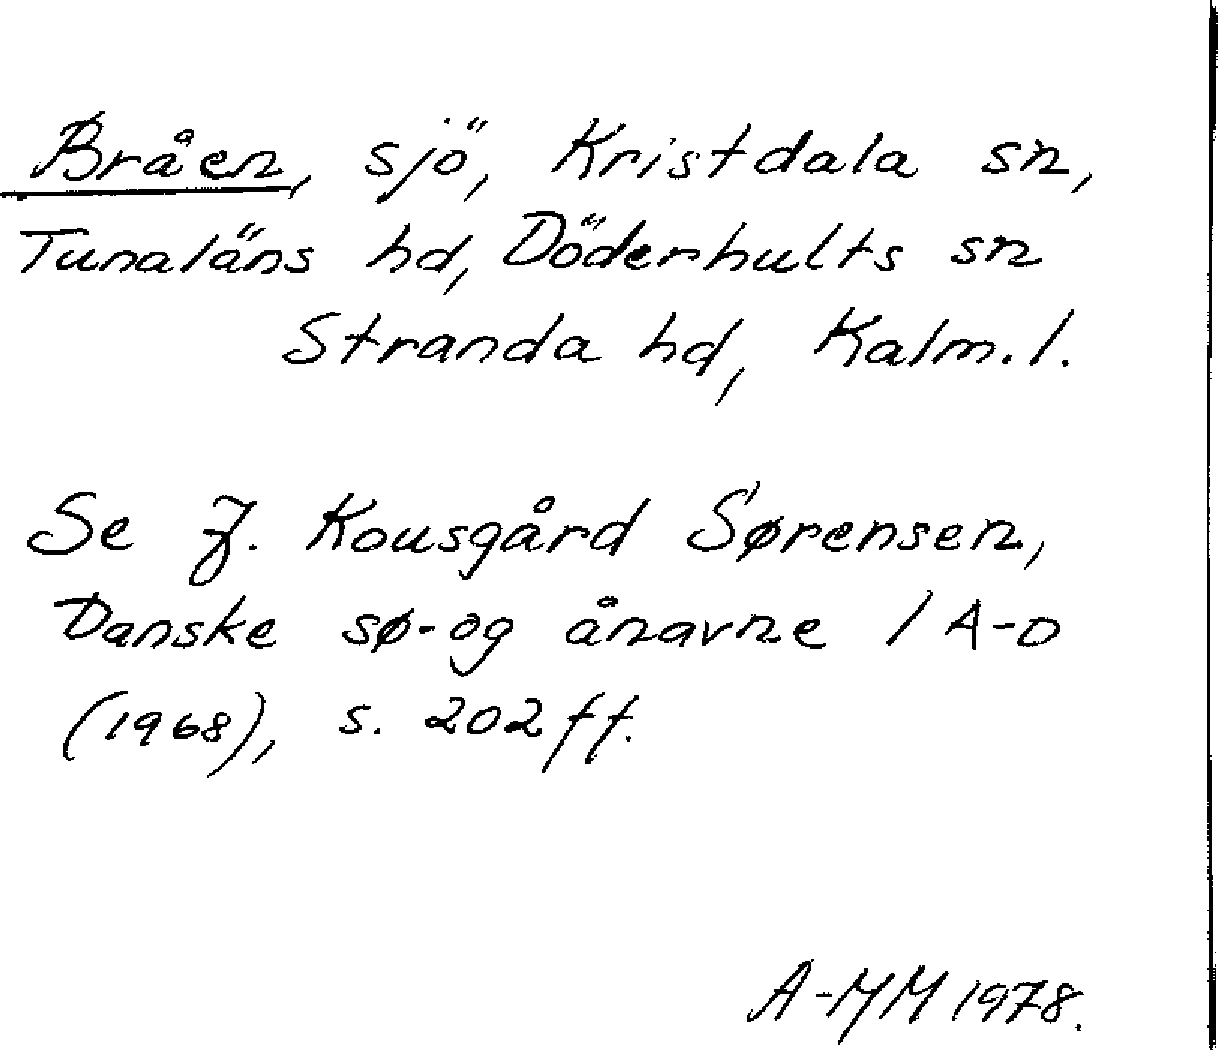 Bråen, sjö, Kristdala sn,
Tunaläns hd, Döderhults sn
Stranda hd, Kalm. l.
Se J. Kousgård Sørensen,
Danske sø- og ånavne 1 A-D
(1968), s. 202 ff.
A-MM 1978.